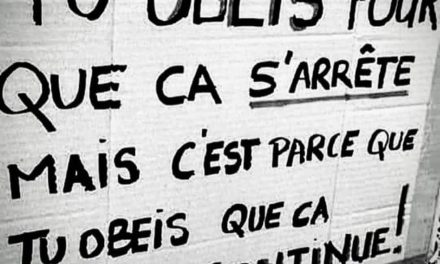 TU OBEIS POUR
QUE CA S'ARRÊTE
MAIS C'EST PARCE QUE
TU OBEIS QUE CA
CONTINUE!